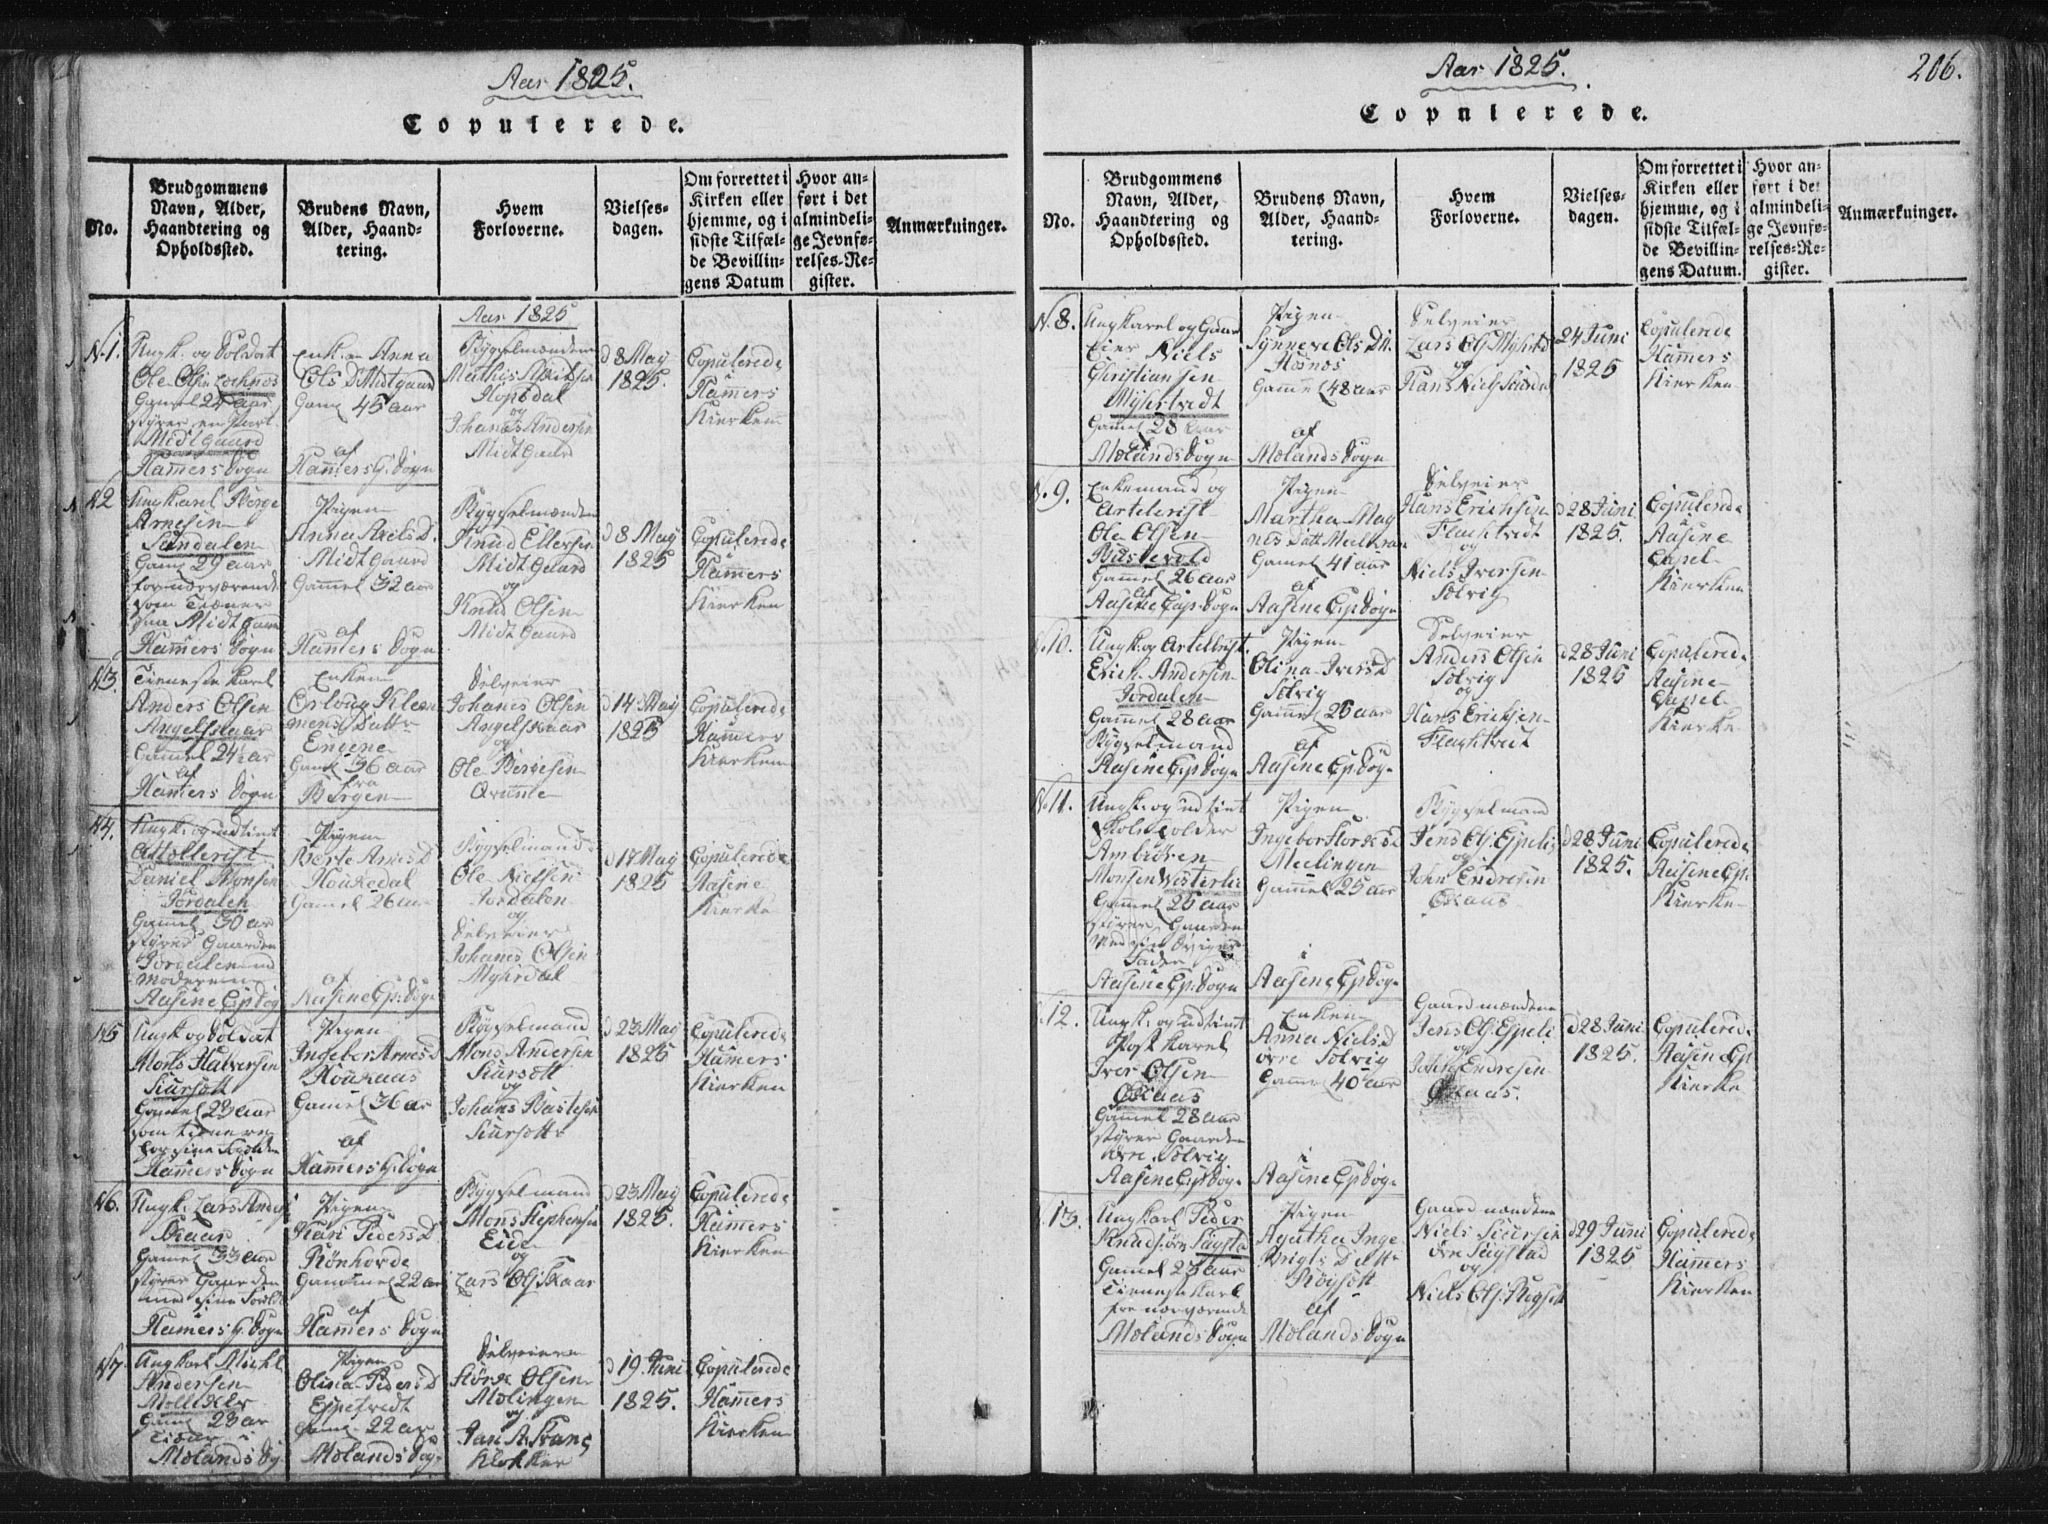 Aar 1825.
Copulerede.
No.
Brudgommens
Navn, Alder,
Haandtering og
Opholdssted.
Brudens Navn,
Alder, Haand-
tering.
Hvem
Forloverne.
Vielses-
dagen.
Om forrettet i
Kirken eller
hjemme, og i
sidste Tilfæl-
de Bevillin-
gens Datum
Hvor an-
ført i det
almindeli-
ge Jevnfø-
relses-Re-
gister.
Anmærkninger.
Aar 1825
N.1.
Ungk. og Soldat
Ole Olsen
Gamel 24 aar
Midtgaard
Hamers Sogn
Enken Anna
Ols D Midtgaard
Gamel 45 aar
af
Hamers H. Sogn
Bygselmændene
Mathis
Hopsdal
og
Johanes Andersen
Midtgaard
d 8 May
1825.
Copulerede
i
Hamers
Kierken
N2
Ungkarel Børge
Arnesen
Sandalen
Gamel 29 aar
som Tiener
paa Midtgaard
Hamers Sogn
Pigen
Anna Axels D.
Midtgaard
Gammel 32 aar
af
Hamers Sogn
Bygselmændene
Knud Ellersen
Midtgaard
og
Knud Olsen
Midtgaard
d 8 May
1825
Copulerede
i
Hamers
Kierken
N3.
Tieneste Karel
Anders Olsen
Angelskaar
Gamel 24½ aar
af
Hamers Sogn
Enken
mens Datter
Gamel 36 aar
fra
Bergen
Selveier
Johanes Olsen
Angelskaar
og
Ole
d 14 May
1825
Copulerede
Hammers
Kierken
N4.
Ungk. og udtient
Daniel Monsen
Jordalen
Gamel 30 aar
styrer Gaarden
Jordalen med
Moderen
Aasene Cp: Sog
Pigen
Berte Arnes D
Houkedal
Gamel 26 aar
af
Aasene Cp: Sogn
Bygselmand
Ole Nielsen
Jordalen
og
Selveier
Johanes Olsen
Myhrdal
d 17 May
1825
Copulerede
Aasene
Kierke
N5
Ungk og Soldat
Mons Halversen
Siursett
Gamel 23 aar
som tiener
Hamers Sogn
Pigen
Ingebor Arnes D
Houkaas
Gamel 36 aar
af
Hamers H. Sogn
Bygselmand
Mons Andersen
Siursett
og
Siursett
d 23 May
1825
Copulerede
Hamers
Kierken
N6.
Ungk. Lars Anders
Skaar
Gamel 33 aar
styrer Gaarden
med sine Foreld
i
Hamers H. Sogn
Pigen
Kari Peders D
Rønhovde
Gammel 22 aar
af
Hamers Sogn
Bygselmand
Mons Stephensen
Eide
og
Lars Ols: Skaar
d 23 May
1825.
Copulerede
Hamers
Kierken
N7.
Ungkarl Michl
Andersen
Gamel 23 aar
Mølands Sog
Pigen
Olina Peders D
Espetvedt
Gamel 22 aar
Mølands Sog
Selveierne
Størk Olsen
Mølingen
og
Klokker
d 19 Juni
1825.
Copulerede
Hamers
Kierken
Aar 1825.
206.
Copulerede.
No.
Brudgommens
Navn, Alder,
Haandtering og
Opholdssted.
Brudens Navn,
Alder, Haand-
tering.
Hvem
Forloverne.
Vielses-
dagen.
Om forrettet i
Kirken eller
hjemme, og i
sidste Tilfæl-
de Bevillin-
gens Datum.
Hvor an-
ført i det
almindeli-
ge Jevnfø-
relses-Re-
gister.
Anmærkninger.
N. 8.
Ungkarel og Gaard
Eier Niels
Christiansen
Myhrtvedt
Gammel 28 aar
af
Mølands Sogn
Pigen
Synneve Ols Dtt.
Høsnes
Gammel 48 aar
af
Mølands Sogn
Selveier
Lars Ols: Myhrtved
og
Hans Niels:
24 Juni
1825
Copulerede
Hamers
Kierken
N. 9.
Enkemand og
Artelerist
Ole Olsen
Gamel 26 aar
af
Aasene Cap: Sogn
Pigen
Martha Mag
nes Datt
Gamel 41 aar
af
Aasene Cp Sogn
Selveier
Hans Erichsen
Flachtvedt
og
Niels Iversen
Solvig
d 28 Juni
1825.
Copulerede
i
Aasene
Capel
Kierken
10.
Ungk: og Artellrist
Erich Andersen
Jordalen
Gammel 28 aar
Bygselmand
Aasene Cp Sogn
Pigen
Olina Ivers D
Solvig
Gammel 26 aar
af
Aasene Cp Sogn
Selveier
Anders Olsen
Solvig
og
Hans Erichsen
Flachtvedt
d 28 Juni
1825
Copulerede
Aasene
Capel
Kierke
N. 11.
Ungk: og udtient
Ambrøren
Monsen Westerlie
Gammel 26 aar
styrer Gaarden
med sin Sviger
Fader
Aasene Cp: Sogn
Pigen
Ingebor Størks D
Meelingen
Gammel 25 aar
i
Aasene Cp Sogn
Bygselmand
Jens Ols: Espeli
og
John Endresen
Øxaas
d 28 Juni
1825.
Copulerede
Aasene Cp:
Kierke
12.
Ungk: og udtient
Post Karel
Iver Olsen
Øxaas
Gammel 28 aar
styrer Gaarden
øvre Solvig
Aasene Cp Sogn
Enken
Anna Niels D
øvre Solvig
Gammel 40 aar
i
Aasene Cp Sogn
Gaardmændene
Jens Ols: Espeli
og
John Endresen
Øxaas.
d 28 Juni
1825.
Copulerede
Aasen Cp
Kierke
13.
Ungkarl Peder
Knuds: øvre Sagsta
Gammel 23 aar
Tieneste Karl
for nærværende
Mølands Sogn
Pigen
Agatha Inge
brigts Dattr
Røysett
af
Mølands Sogn
Gaardmændene
Niels Siursen
øvre Sagstad
og
Niels Ols: Røysett
d 29 Juni
1825
Copulerede
Hamers
Kierken